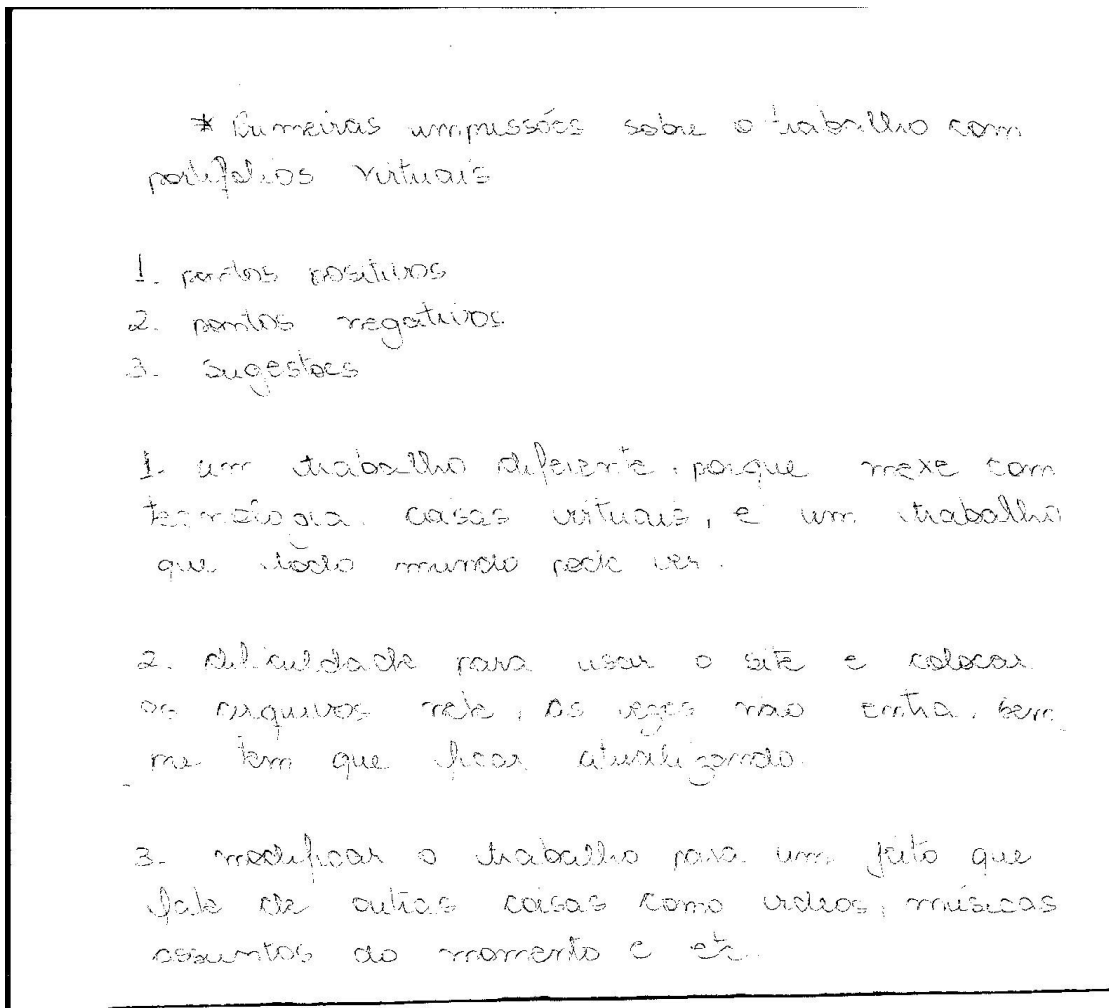 * Primeiras impressões sobre o trabalho com
portifolios virtuais
1. pontos positivos
2. pontos negativos
3. sugestoes
1. um trabalho diferente, porque mexe com
tecnologia, coisas virtuais, e um trabalho
que todo mundo pode ver.
2. dificuldade para usar o site e colocar
os arquivos nele, as vezes não entra,
tem que ficar atualizando.
3. modificar o trabalho para um jeito que
fale de outras coisas como videos, músicas
assuntos do momento e etc.